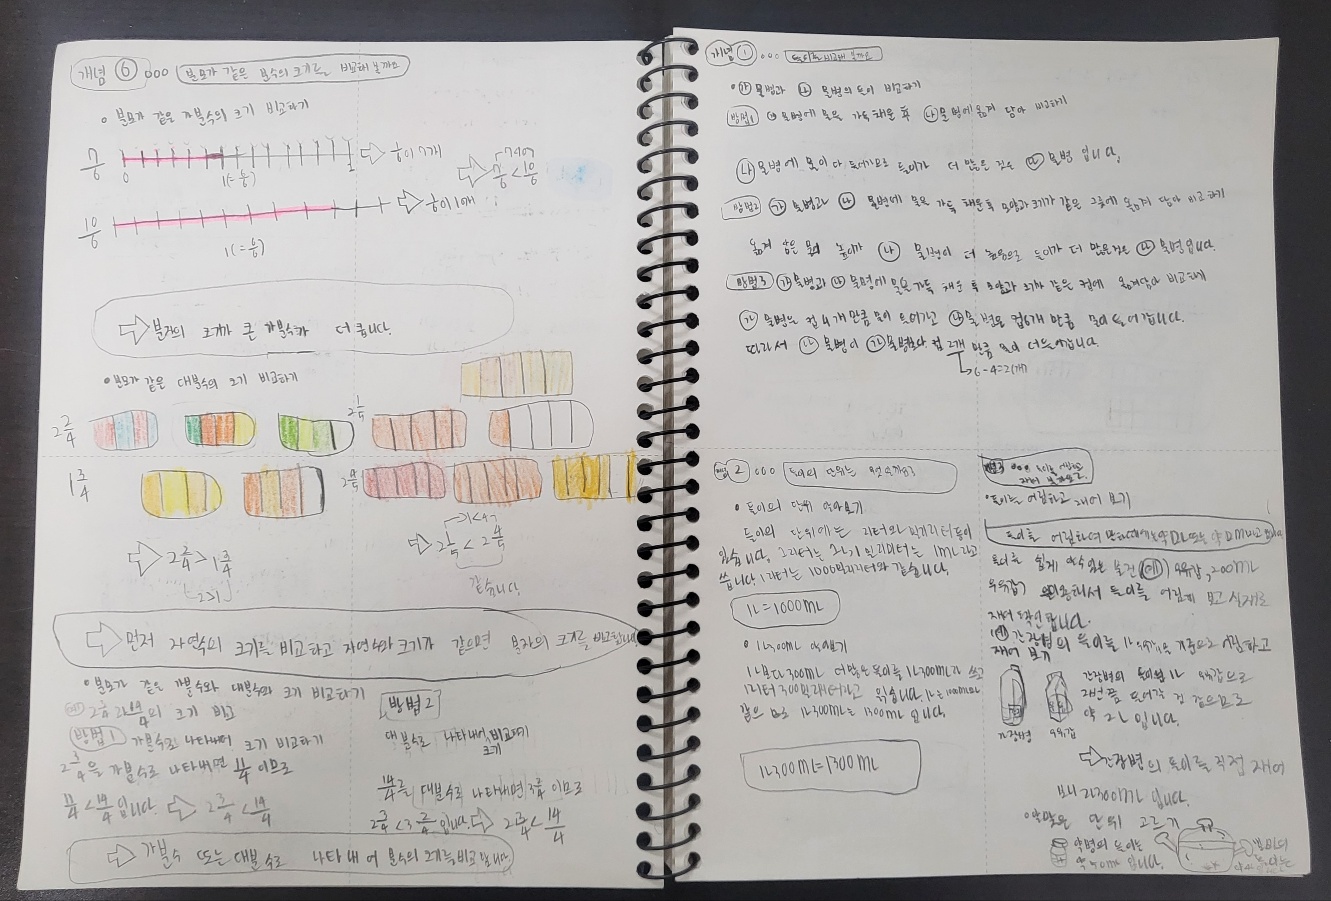 개념 ⑥ ○○○ 분모가 같은 분수의 크기를 비교해 볼까요
○ 분모가 같은 가분수의 크기 비교하기
7/6 0 1(=6/6) ⇨ 1/6이 7개
7<10
⇨ 7/6 < 10/6
10/6 1(=6/6)
⇨ 분자의 크기가 큰 가분수가 더 큽니다.
○ 분모가 같은 대분수의 크기 비교하기
2 2/4 2 1/5
1 3/4 2 4/5
⇨ 2 2/4 > 1 3/4
2>1
1<4
⇨ 2 1/5 < 2 4/5
같습니다.
⇨ 먼저 자연수의 크기를 비교하고 자연수의 크기가 같으면 분자의 크기를 비교합니다
○ 분모가 같은 가분수와 대분수의 크기 비교하기
예 2 3/4과 14/4의 크기 비교
방법1 가분수로 나타내어 크기 비교하기
2 3/4을 가분수로 나타내면 11/4 이므로
11/4 < 14/4 입니다. ⇨ 2 3/4 < 14/4
방법2
대분수로 나타내어 비교하기
크기
14/4를 대분수로 나타내면 3 2/4 이므로
2 3/4 < 3 2/4 입니다. ⇨ 2 3/4 < 14/4
⇨ 가분수 또는 대분수로 나타내어 분수의 크기를 비교합니다.
개념 ① ○○○ 들이를 비교해 볼까요
○ 가 물병과 나 물병의 들이 비교하기
방법1 가 물병에 물을 가득 채운 후 나 물병에 옮겨 담아 비교하기
나 물병에 물이 다 들어가므로 들이가 더 많은 것은 나 물병 입니다.
방법2 가 물병과 나 물병에 물을 가득 채운 후 모양과 크기가 같은 그릇에 옮겨 담아 비교하기
옮겨 담은 물의 높이가 나 물병이 더 높음으로 들이가 더 많은것은 나 물병입니다.
방법3 가 물병과 나 물병에 물을 가득 채운 후 모양과 크기가 같은 컵에 옮겨담아 비교하기
가 물병은 컵 4개 만큼 물이 들어가고 나 물병은 컵 6개 만큼 물이 들어갑니다.
따라서 나 물병이 가 물병보다 컵 2개 만큼 물이 더 들어갑니다.
6-4=2(개)
개념 2 ○○○ 들이의 단위는 무엇일까요?
○ 들이의 단위 알아보기
들이의 단위에는 리터와 밀리리터 등이
있습니다. 1리터는 1L 1밀리미터는 1mL라고
씁니다 1리터는 1000밀리리터와 같습니다.
1L=1000mL
○ 1L300mL 알아보기
1L보다 300mL 더 많은 들이를 1L300mL라 쓰고
1리터 300밀리리터라고 읽습니다. 1L는 1000mL와
같으므로 1L300mL는 1300mL 입니다.
1L300mL=1300mL
개념3 ○○○ 들이를 어림하고
재어 볼까요.
○ 들이를 어림하고 재어 보기
들이를 쉽게 알수있는 물건 (예) 우유갑, 200mL
우유갑) 들이를 어림해 보고 실제로
재어 확인합니다.
(예) 간장병의 들이를 1L 우유갑을 기준으로 어림하고
재어 보기
간장병의 들이는 1L 우유갑으로
2번쯤 들어갈 것 같으므로
약 2L 입니다.
간장병 우유갑
⇨ 간장병의 들이를 직접 재어
보니 2L300mL 입니다.
○ 알맞은 단위 고르기
약병의 들이는
입니다.